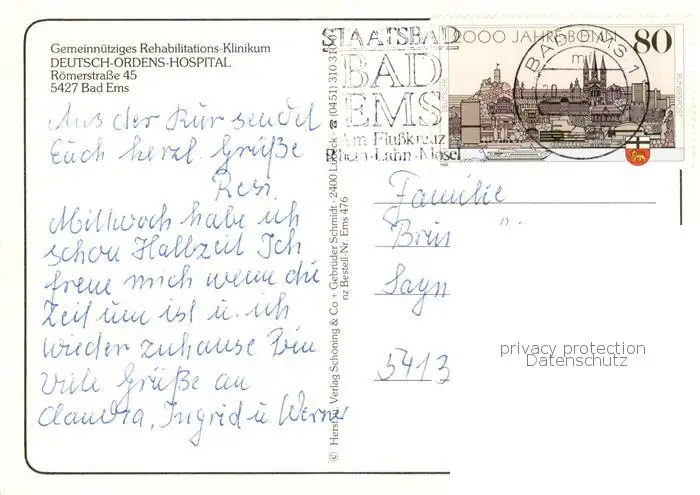 Gemeinnütziges Rehabilitations-Klinikum
DEUTSCH-ORDENS-HOSPITAL
Römerstraße 45
5427 Bad Ems
Aus der Kur sendet
Euch herzl. Grüße
Resi
Mittwoch habe ich
schon Halbzeit Ich
freue mich wenn die
Zeit um ist u. ich
wieder zuhause bin
Viele Grüße an
Claudia, Ingrid u Werner
© Herst. u. Verlag Schöning & Co + Gebrüder Schmidt · 2400 Lübeck · ☎ (0451) 310 31
nz Bestell-Nr. Ems 476
STAATSBAD
BAD
EMS
Am Flußkreuz
Rhein-Lahn-Mosel
2000 JAHRE BONN
80
DEUTSCHE
BUNDESPOST
BAD EMS 1
Familie
Brün
Sayn
5413
privacy protection
Datenschutz